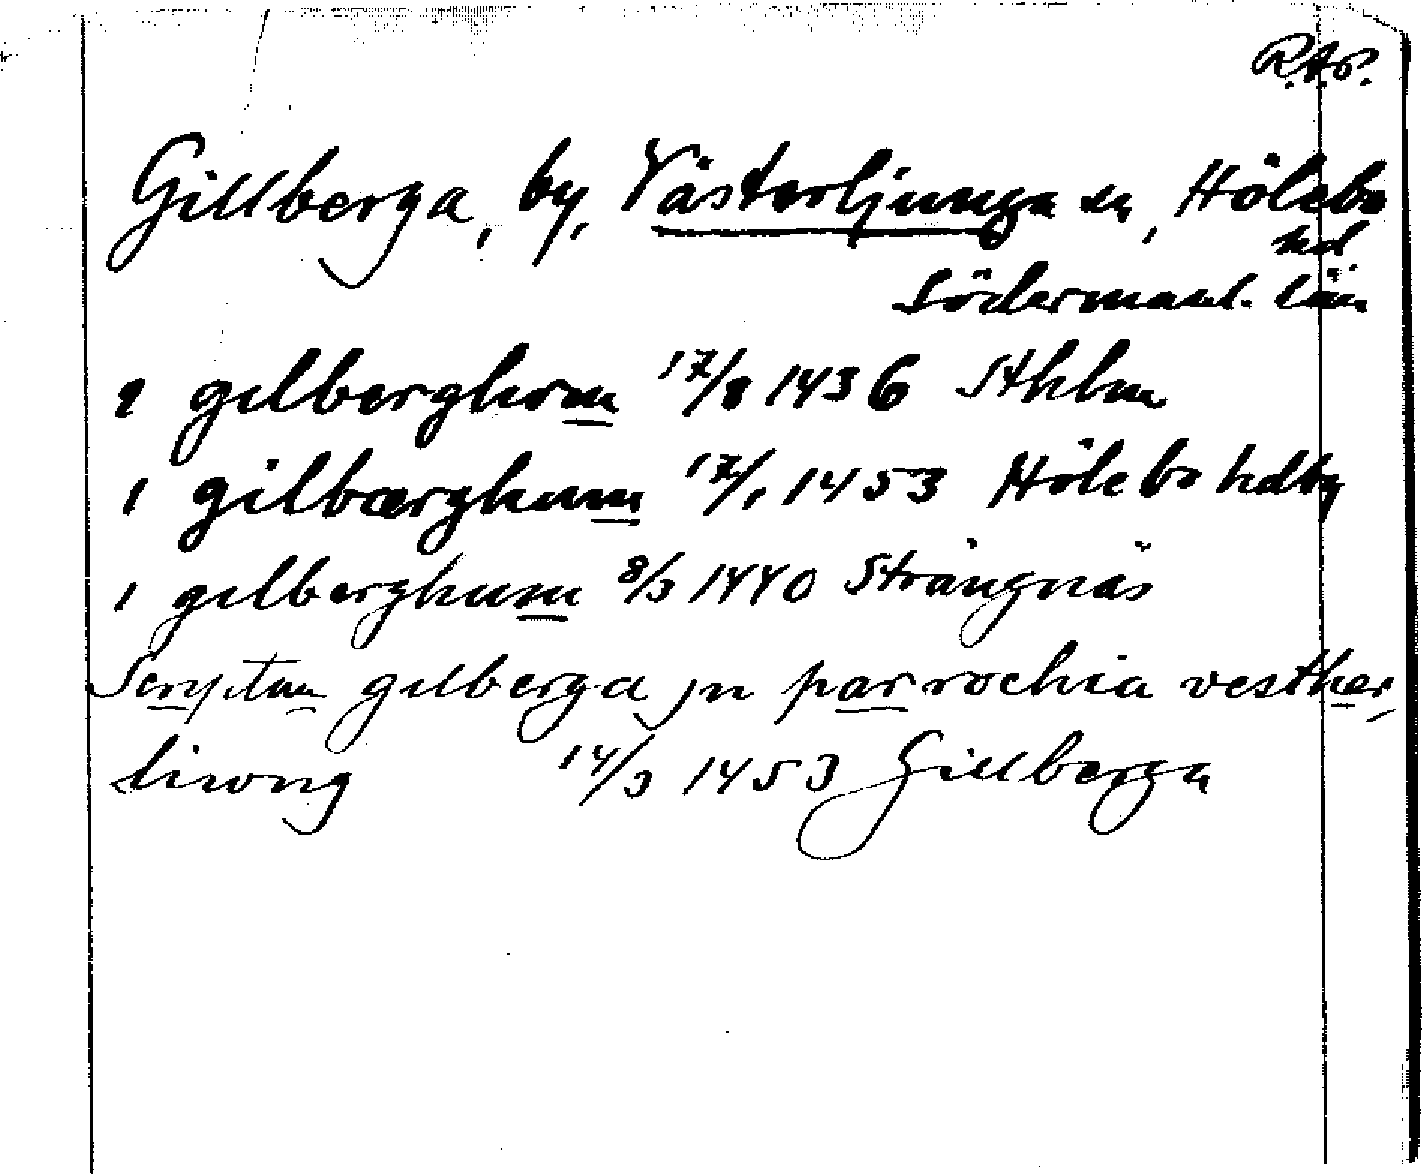 R.A.P.
Gillberga, by, Västerljunga sn, Hölebo
hd
Södermanl. län
I gilberghom 17/8 1436 Sthlm
I gilbærghum 17/1 1453 Hölebo hdtg
I gilberghum 8/3 1440 Strängnäs
Scryptum gilberga jn parrochia vesther,
liwng 14/3 1453 Gillberga